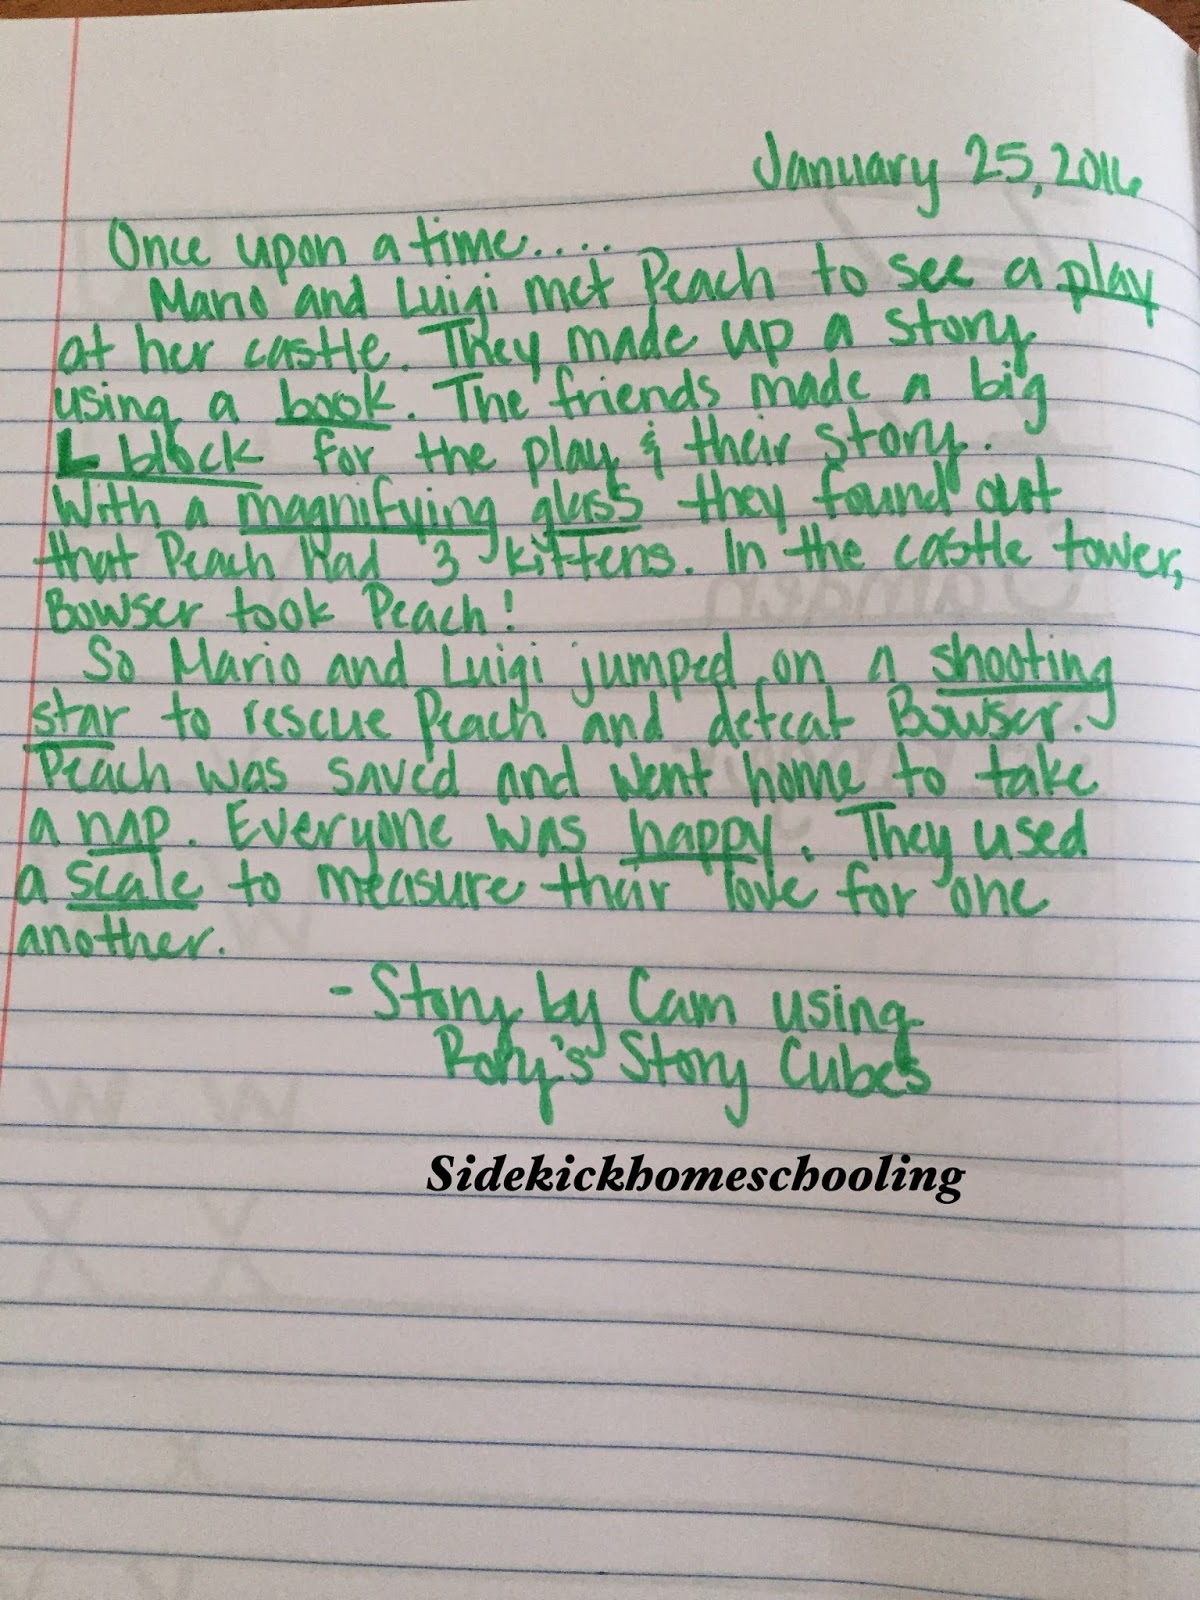 January 25, 2016
Once upon a time....
Mario and Luigi met Peach to see a play
at her castle. They made up a story
using a book. The friends made a big
L block for the play & their story.
With a magnifying glass they found out
that Peach had 3 kittens. In the castle tower,
Bowser took Peach!
So Mario and Luigi jumped on a shooting
star to rescue Peach and defeat Bowser.
Peach was saved and went home to take
a nap. Everyone was happy. They used
a scale to measure their love for one
another.
- Story by Cam using
Rory's Story Cubes
Sidekickhomeschooling